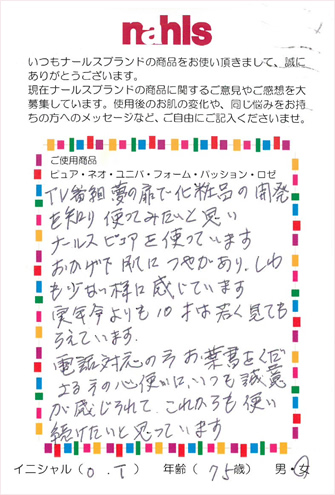 nahls
いつもナールスブランドの商品をお使い頂きまして、誠に
ありがとうございます。
現在ナールスブランドの商品に関するご意見やご感想を大
募集しています。使用後のお肌の変化や、同じ悩みをお持
ちの方へのメッセージなど、ご自由にご記入くださいませ。
ご使用商品
ピュア・ネオ・ユニバ・フォーム・パッション・ロゼ
TV番組 夢の扉で化粧品の開発
を知り 使ってみたいと思い
ナールスピュアを使っています
おかげで 肌につやがあり、しわ
も少ない様に感じています
実年令よりも10才は若く見ても
らえています。
電話対応の方 お葉書をくだ
さる方の心使いに、いつも誠意
が感じられて、これからも使い
続けたいと思っています
イニシャル（O．T） 年齢（75歳） 男・女